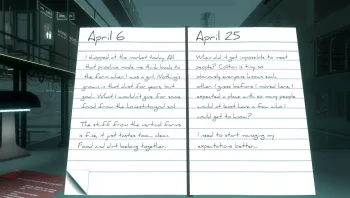 April 6
I stopped at the market today. All
that produce made me think back to
the farm when I was a girl. Nothing's
grown in that dust for years, but
god... What I would it give for some
food from the
The stuff from the vertical farms
is fine, it just tastes too... clean.
Food and dirt belong together.
April 25
When did it get impossible to meet
people? Colton is tiny, so
obviously everyone knows each
other. I guess before I moved here, I
expected a place with so many people
would at least have a few who I
could get to know?
I need to start managing my
expectations better.